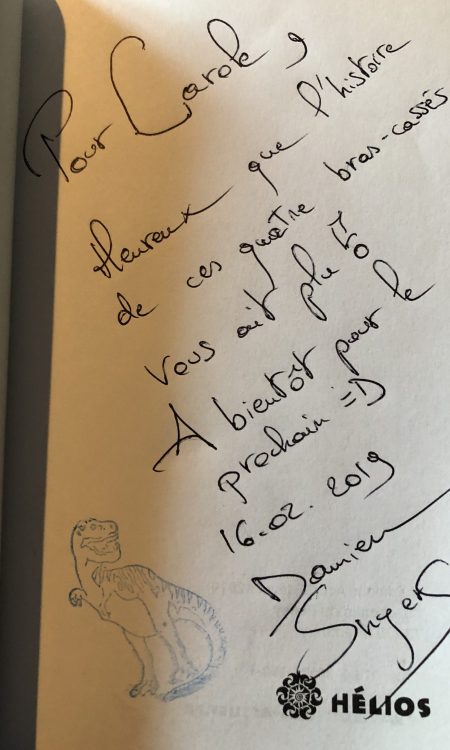 Pour Carole,
Heureux que l'histoire
de ces quatre bras-cassés
vous ait plu !!
A bientôt pour le
prochain =D
16.02.2019
Damien
Snyers
HÉLIOS